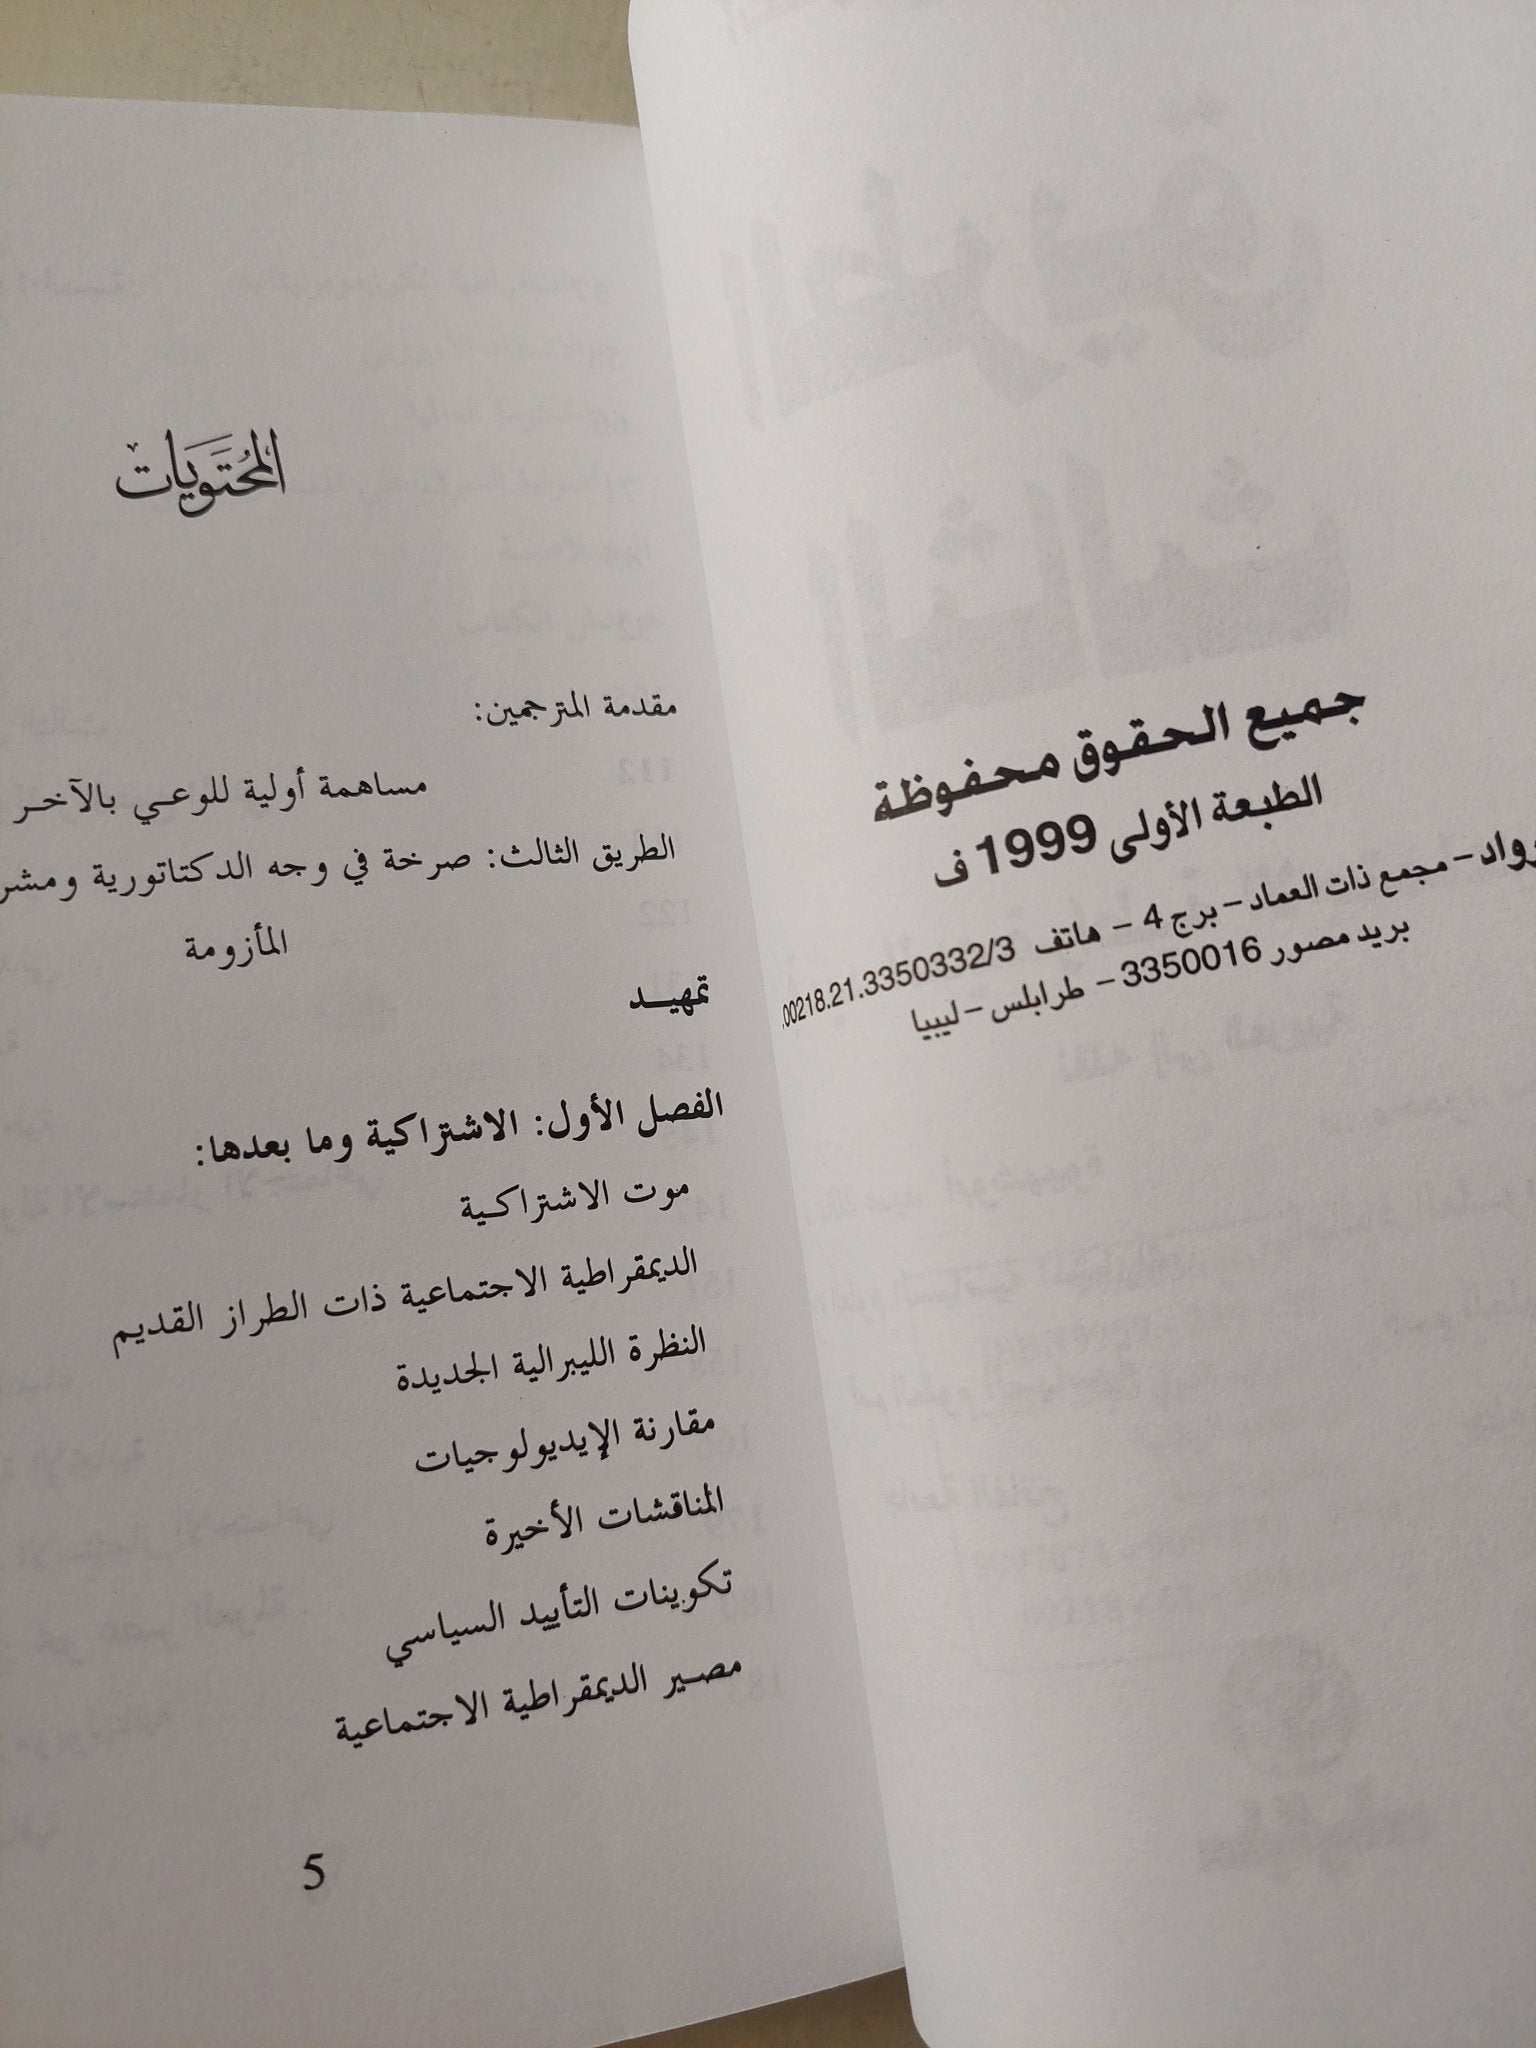 جميع الحقوق محفوظة
الطبعة الأولى 1999 ف
رواد – مجمع ذات العماد – برج 4 – هاتف 00218.21.3350332/3
بريد مصور 3350016 – طرابلس – ليبيا
المحتويات
مقدمة المترجمين:
مساهمة أولية للوعي بالآخر
الطريق الثالث: صرخة في وجه الدكتاتورية ومشر
المأزومة
تمهيد
الفصل الأول: الاشتراكية وما بعدها:
موت الاشتراكية
الديمقراطية الاجتماعية ذات الطراز القديم
النظرة الليبرالية الجديدة
مقارنة الإيديولوجيات
المناقشات الأخيرة
تكوينات التأييد السياسي
مصير الديمقراطية الاجتماعية
5